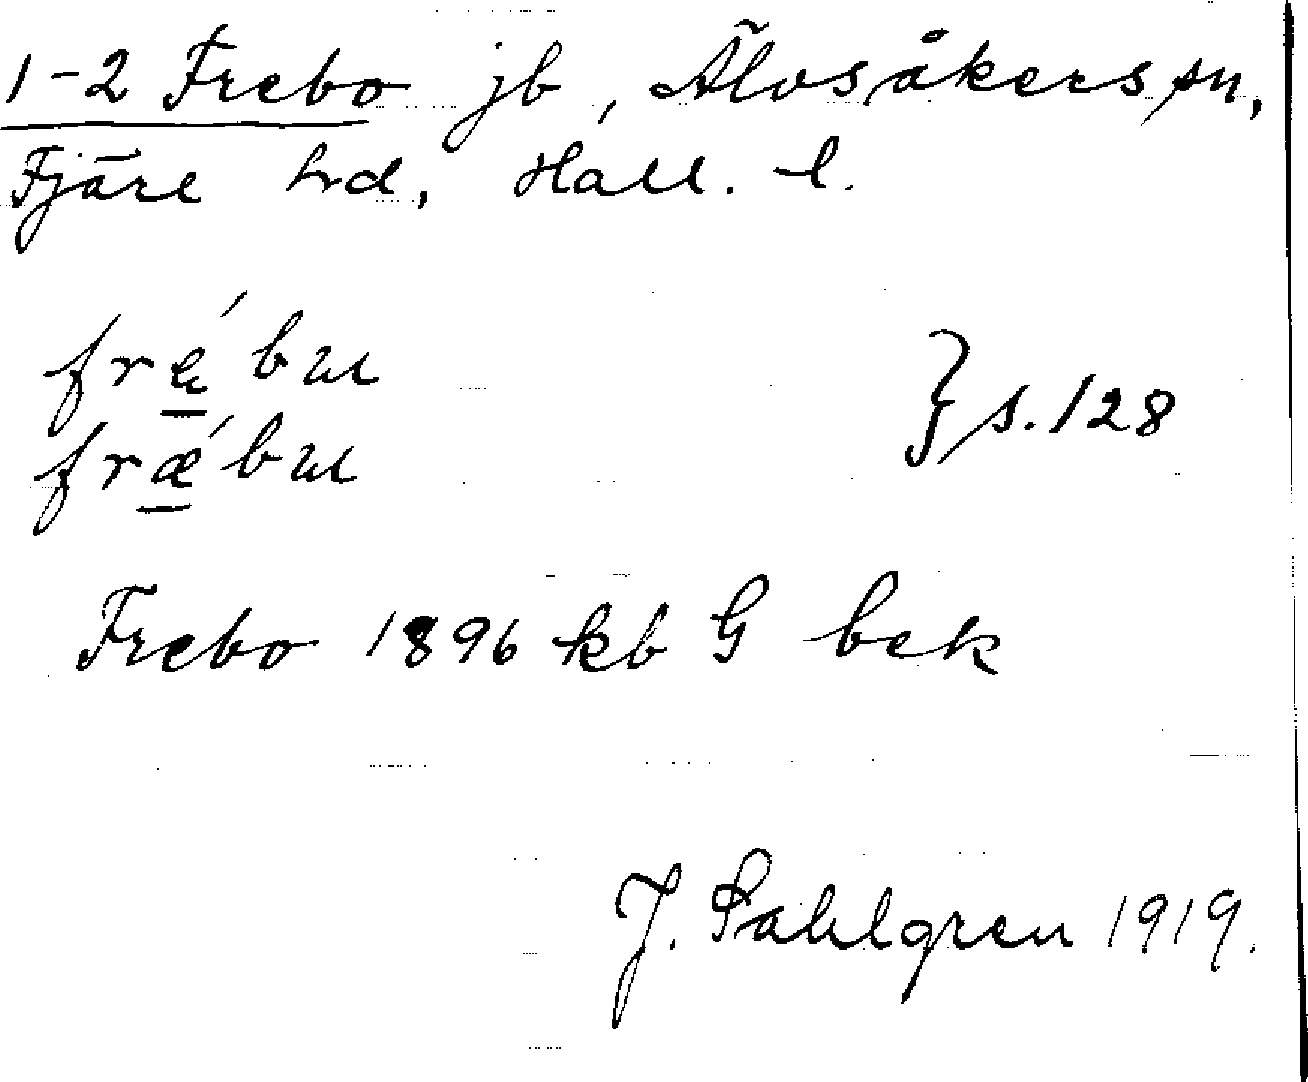 1-2 Frebo jb, Älvsåkers sn,
Fjäre hd, Hall. l.
fré̲bu
frǽ̲bu } s. 128
Frebo 1896 kb G bek
J. Sahlgren 1919.